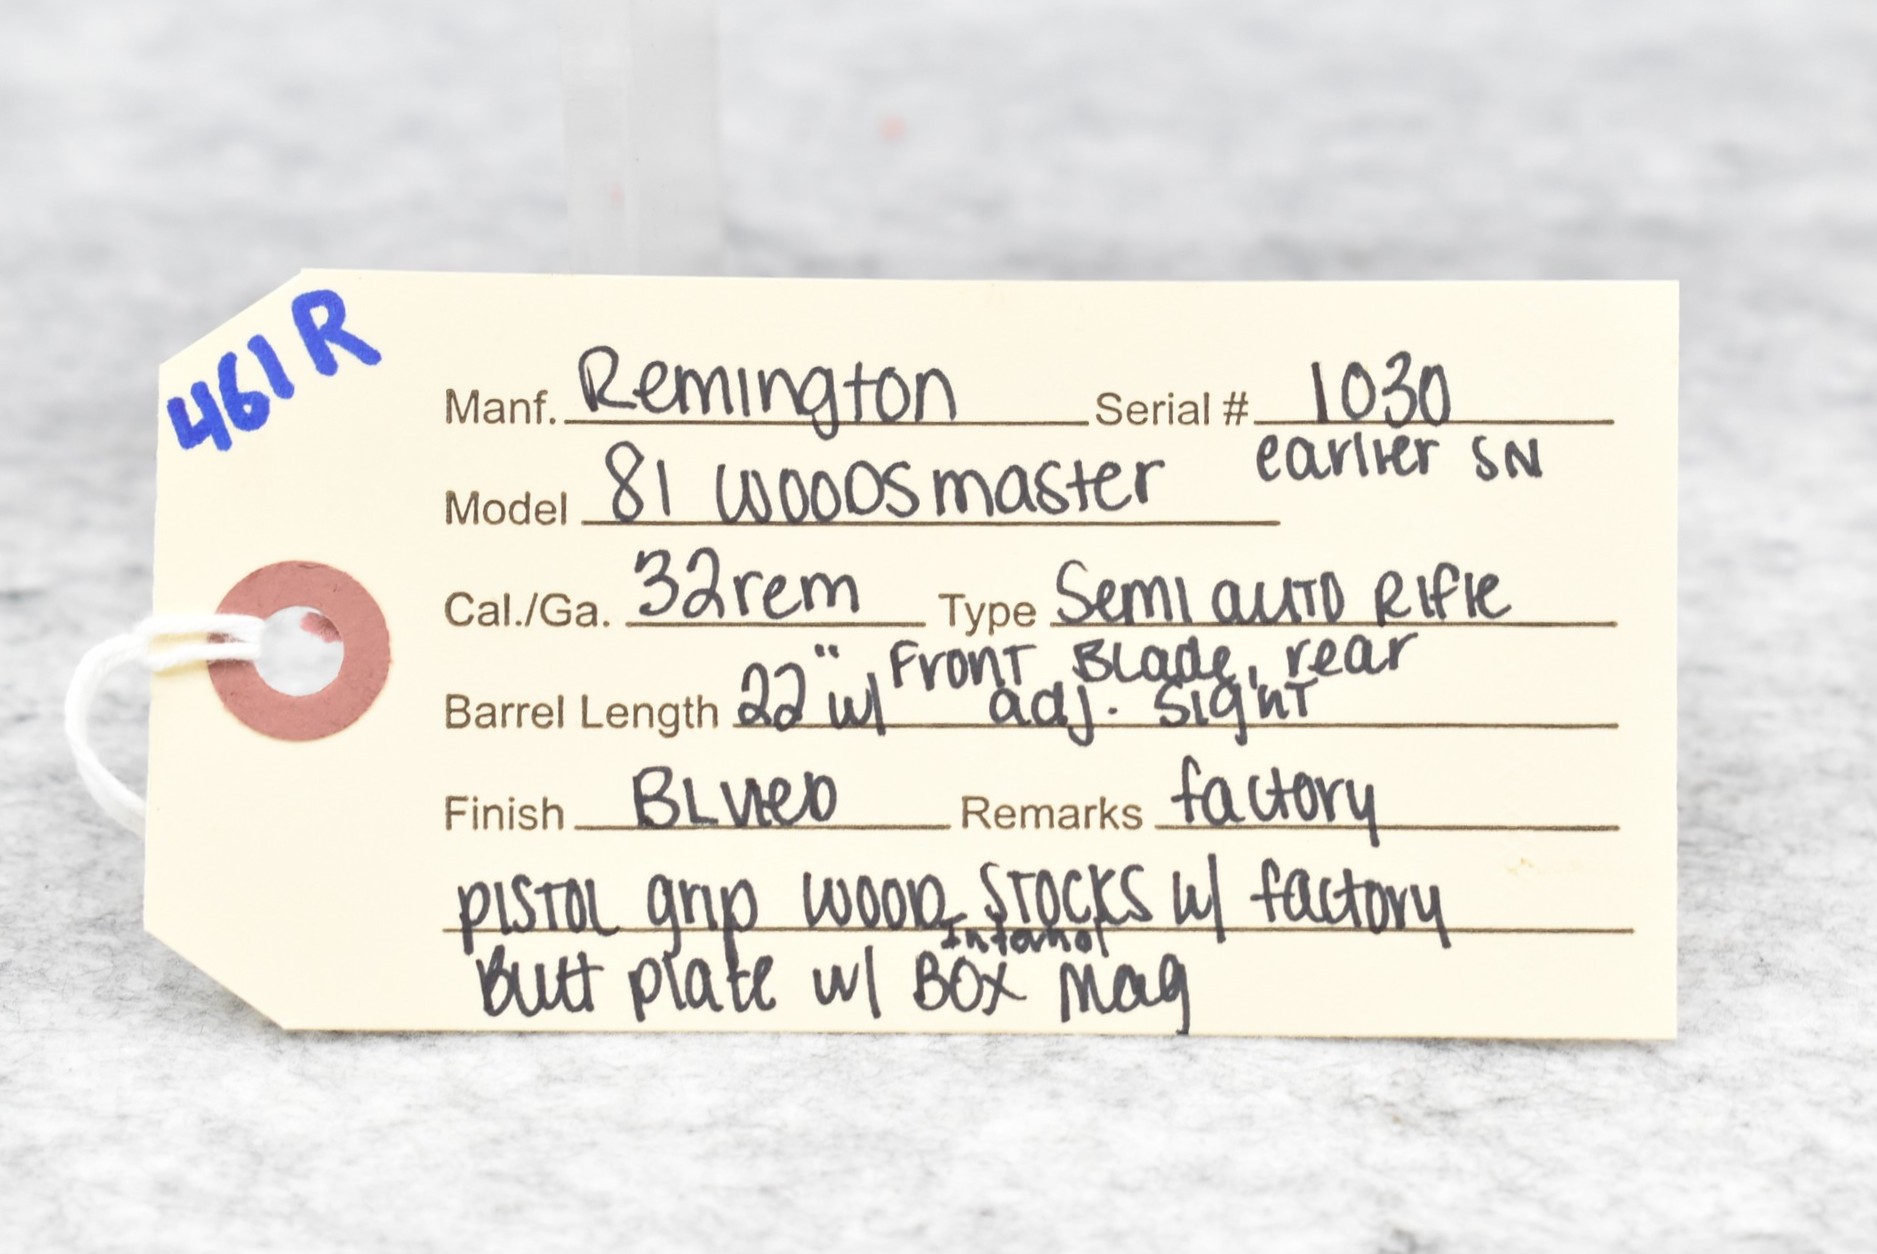 461R
Manf. Remington Serial # 1030
earlier SN
Model 81 WOODSmaster
Cal./Ga. 32rem Type Semi auto Rifle
Front Blade, rear
Barrel Length 22" w/ adj. Sight
Finish BLUED Remarks factory
PISTOL grip WOOD STOCKS w/ factory
Internal
Butt plate w/ BOX Mag